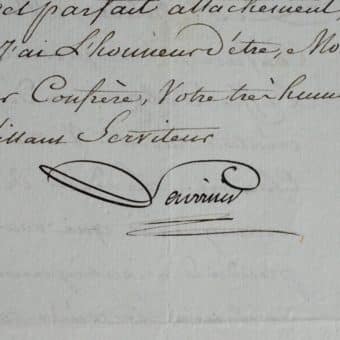 et parfait attachement,
J'ai L'honneur d'être, Mo
r Confrère, Votre très hum
éissant Serviteur